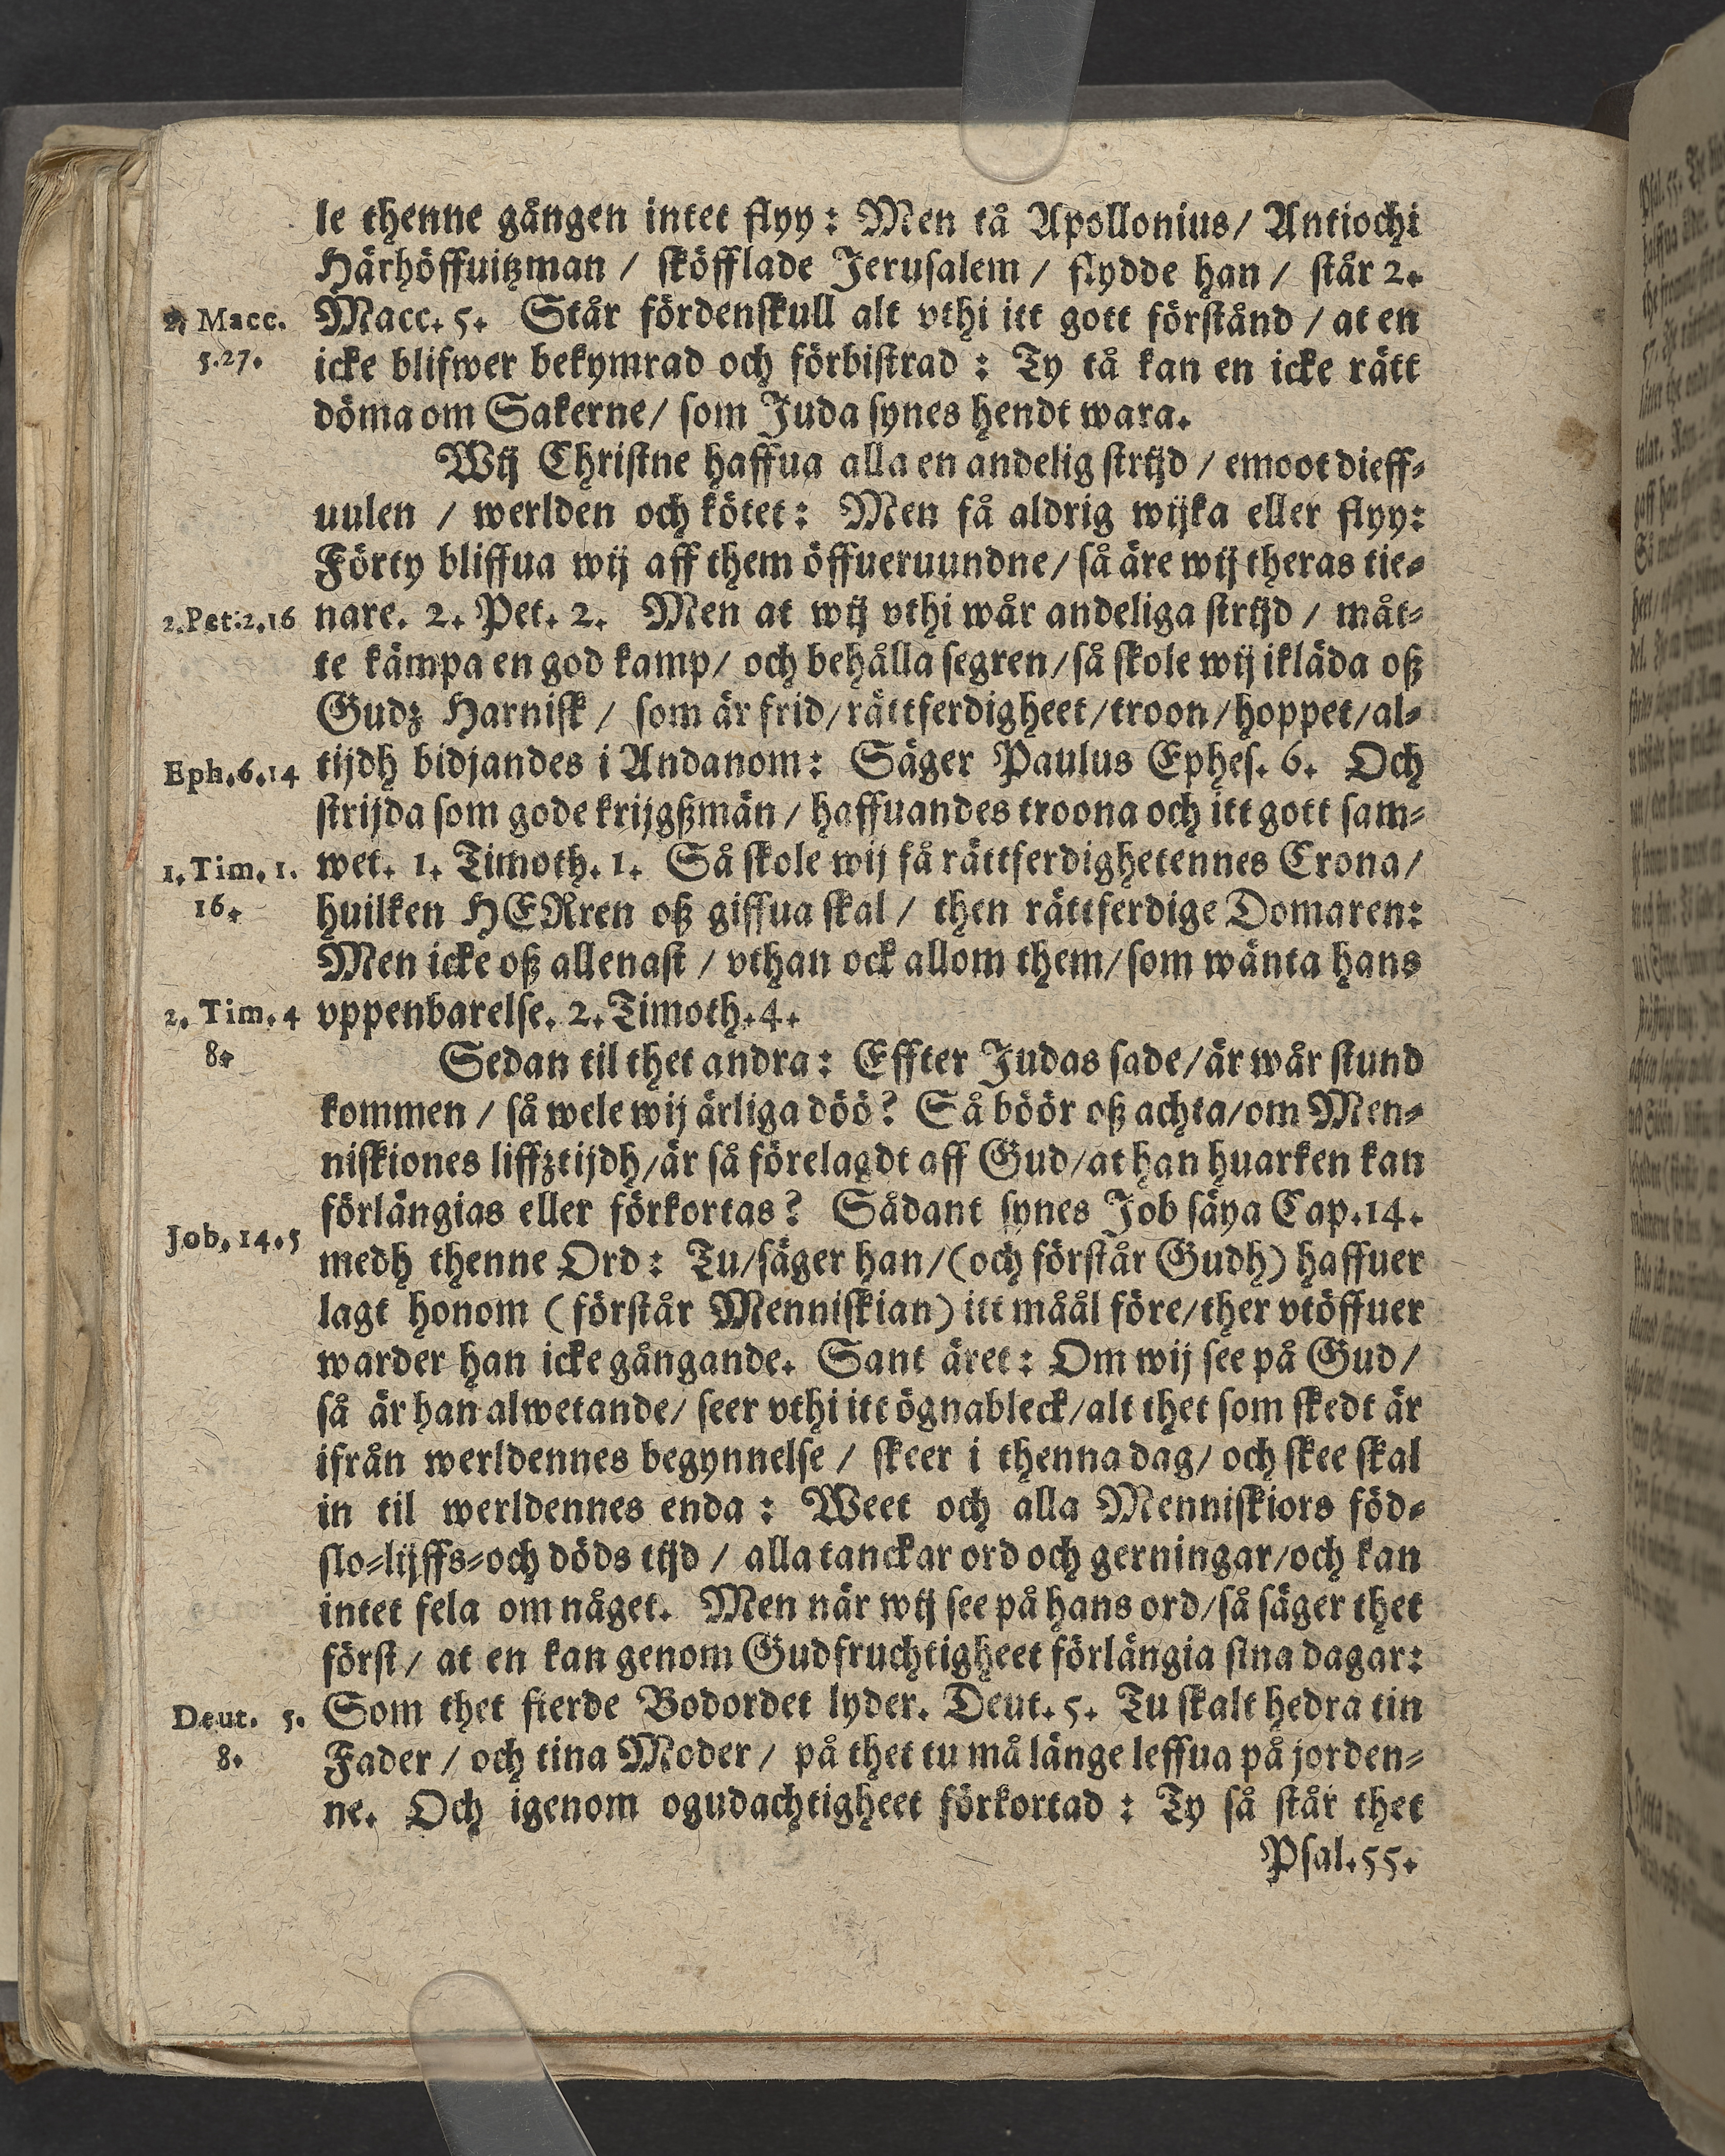 le thenne gången intet flyy: Men tå Apollonius/ Antiochi
Härhöffuitzman / sköfflade Jerusalem / flydde han / står 2.
2, Macc.
5.27.
Macc. 5. Står fördenskull alt vthi itt gott förstånd / at en
icke blifwer bekymrad och förbistrad : Ty tå kan en icke rätt
döma om Sakerne/ som Juda synes hendt wara.
Wij Christne haffua alla en andelig strijd / emoot dieff-
uulen / werlden och kötet: Men få aldrig wijka eller flyy:
Förty bliffua wij aff them öffueruundne/ så äre wij theras tie-
2.Pet:2.16
nare. 2. Pet. 2. Men at wij vthi wår andeliga strijd / måt-
te kämpa en god kamp/ och behålla segren/så skole wij ikläda oß
Gudz Harnisk / som är frid/rättferdigheet/troon/hoppet/al-
Eph.6.14
tijdh bidjandes i Andanom: Säger Paulus Ephes. 6. Och
strijda som gode krijgßmän / haffuandes troona och itt gott sam-
1.Tim. 1.
16.
wet. 1. Timoth. 1. Så skole wij få rättferdighetennes Crona/
huilken HERren oß giffua skal / then rättferdige Domaren:
Men icke oß allenast / vthan ock allom them/som wänta hans
2. Tim. 4
8.
vppenbarelse. 2. Timoth. 4.
Sedan til thet andra: Effter Judas sade/är wår stund
kommen / så wele wij ärliga döö? Så böör oß achta/om Men-
niskiones liffztijdh/är så förelagdt aff Gud/at han huarken kan
förlängias eller förkortas? Sådant synes Job säya Cap.14.
Job. 14.5
medh thenne Ord: Tu/säger han/(och förstår Gudh) haffuer
lagt honom (förstår Menniskian) itt måål före/ther vtöffuer
warder han icke gångande. Sant äret: Om wij see på Gud/
så är han alwetande/ seer vthi itt ögnableck/alt thet som skedt är
ifrån werldennes begynnelse / skeer i thenna dag/ och skee skal
in til werldennes enda : Weet och alla Menniskiors föd-
slo-lijffs-och döds tijd / alla tanckar ord och gerningar/och kan
intet fela om något. Men när wij see på hans ord/så säger thet
först/ at en kan genom Gudfruchtigheet förlängia sina dagar:
Deut. 5.
8.
Som thet fierde Bodordet lyder. Deut. 5. Tu skalt hedra tin
Fader / och tina Moder / på thet tu må länge leffua på jorden-
ne. Och igenom ogudachtigheet förkortad : Ty så står thet
Psal.55.